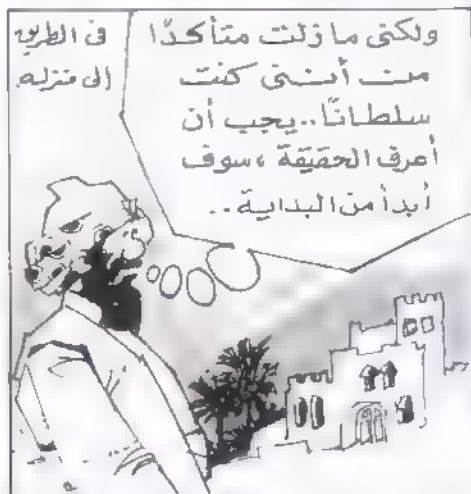 فى الطريق
إلى منزله.
ولكنى ما زلت متأكدًا
من أننى كنت
سلطانًا.. يجب أن
أعرف الحقيقة ، سوف
أبدأ من البداية ..